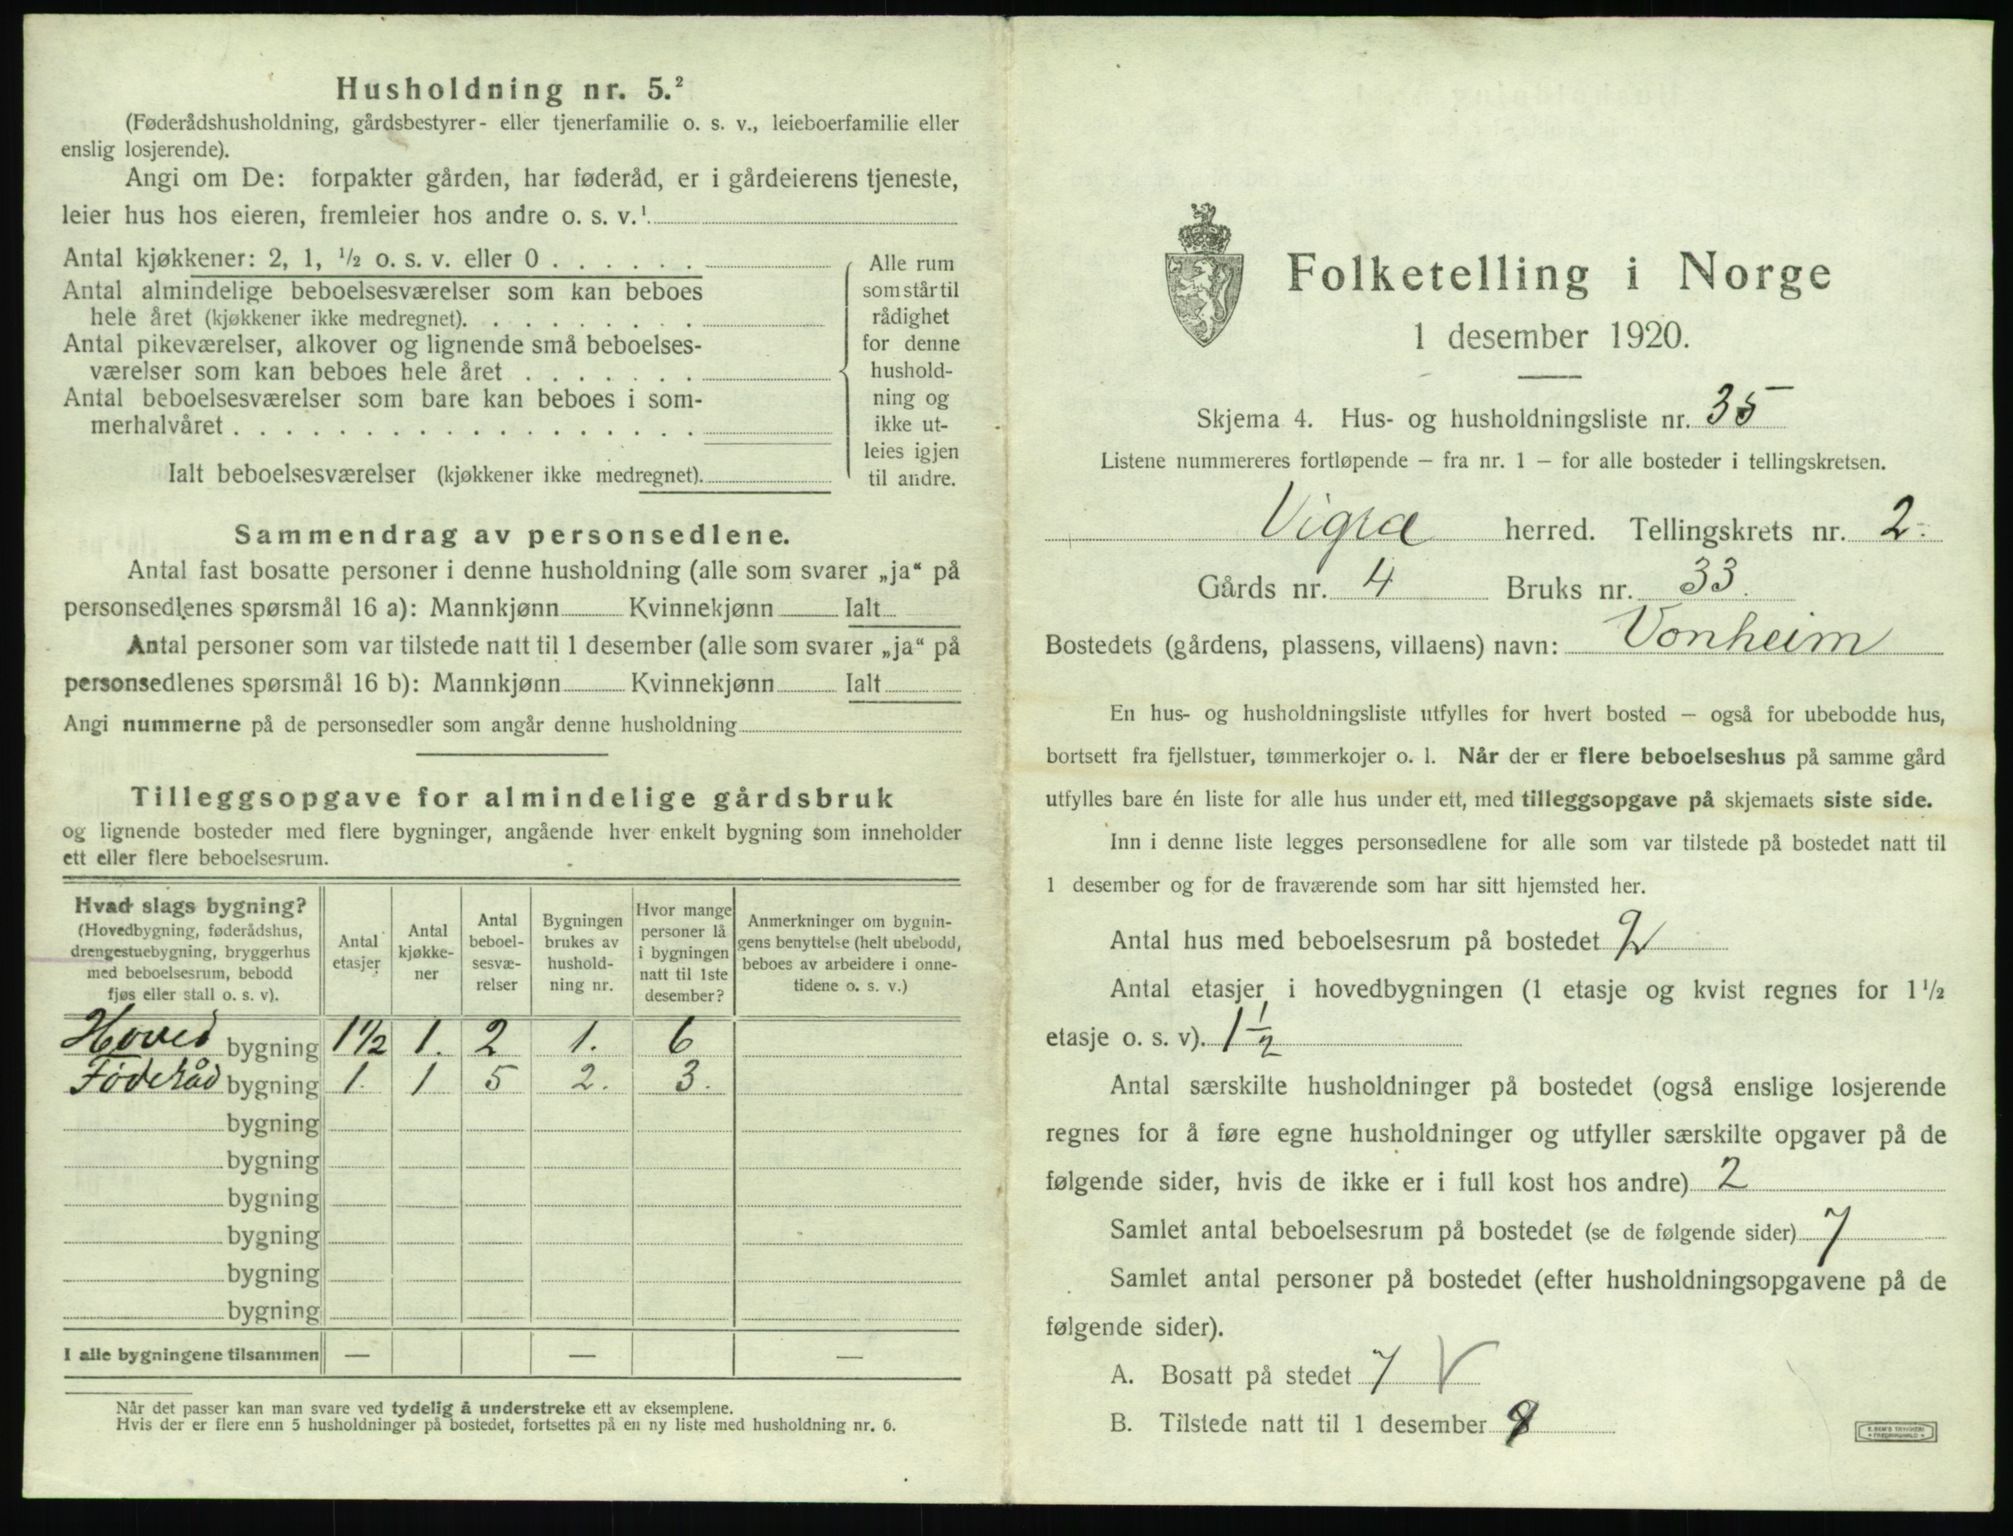 Husholdning nr. 5.²
(Føderådshusholdning, gårdsbestyrer- eller tjenerfamilie o. s. v., leieboerfamilie eller
enslig losjerende).
Angi om De: forpakter gården, har føderåd, er i gårdeierens tjeneste,
leier hus hos eieren, fremleier hos andre o. s. v.¹
Antal kjøkkener: 2, 1, ½ o. s. v. eller 0 . . . . . .
Antal almindelige beboelsesværelser som kan beboes
hele året (kjøkkener ikke medregnet). . . . . . . . .
Antal pikeværelser, alkover og lignende små beboelses-
værelser som kan beboes hele året . . . . . . .
Antal beboelsesværelser som bare kan beboes i som-
merhalvåret . . . . . . . . . . . . . . . . . .
Ialt beboelsesværelser (kjøkkener ikke medregnet).
Alle rum
som står til
rådighet
for denne
hushold-
ning og
ikke ut-
leies igjen
til andre.
Sammendrag av personsedlene.
Antal fast bosatte personer i denne husholdning (alle som svarer „ja“ på
personsedlenes spørsmål 16 a): Mannkjønn Kvinnekjønn Ialt
Antal personer som var tilstede natt til 1 desember (alle som svarer „ja“ på
personsedlenes spørsmål 16 b): Mannkjønn Kvinnekjønn Ialt
Angi nummerne på de personsedler som angår denne husholdning
Tilleggsopgave for almindelige gårdsbruk
og lignende bosteder med flere bygninger, angående hver enkelt bygning som inneholder
ett eller flere beboelsesrum.
Hvad slags bygning?
(Hovedbygning, føderådshus,
drengestuebygning, bryggerhus
med beboelsesrum, bebodd
fjøs eller stall o. s. v).
Antal
etasjer
Antal
kjøkke-
ner
Antal
beboel-
sesvæ-
relser
Bygningen
brukes av
hushold-
ning nr.
Hvor mange
personer lå
i bygningen
natt til 1ste
desember?
Anmerkninger om bygnin-
gens benyttelse (helt ubebodd,
beboes av arbeidere i onne-
tidene o. s. v.)
Hoved bygning 1½ 1. 2 1. 6
Føderåd bygning 1. 1 5 2. 3.
bygning
bygning
bygning
bygning
bygning
bygning
I alle bygningene tilsammen — — —
Når det passer kan man svare ved tydelig å understreke ett av eksemplene.
Hvis der er flere enn 5 husholdninger på bostedet, fortsettes på en ny liste med husholdning nr. 6.
Folketelling i Norge
1 desember 1920.
Skjema 4. Hus- og husholdningsliste nr. 35
Listene nummereres fortløpende — fra nr. 1 — for alle bosteder i tellingskretsen.
Vigra herred. Tellingskrets nr. 2.
Gårds nr. 4 Bruks nr. 33.
Bostedets (gårdens, plassens, villaens) navn: Vonheim
En hus- og husholdningsliste utfylles for hvert bosted — også for ubebodde hus,
bortsett fra fjellstuer, tømmerkojer o. l. Når der er flere beboelseshus på samme gård
utfylles bare én liste for alle hus under ett, med tilleggsopgave på skjemaets siste side.
Inn i denne liste legges personsedlene for alle som var tilstede på bostedet natt til
1 desember og for de fraværende som har sitt hjemsted her.
Antal hus med beboelsesrum på bostedet 2
Antal etasjer i hovedbygningen (1 etasje og kvist regnes for 1½
etasje o. s. v). 1½
Antal særskilte husholdninger på bostedet (også enslige losjerende
regnes for å føre egne husholdninger og utfyller særskilte opgaver på de
følgende sider, hvis de ikke er i full kost hos andre) 2
Samlet antal beboelsesrum på bostedet (se de følgende sider) 7
Samlet antal personer på bostedet (efter husholdningsopgavene på de
følgende sider).
A. Bosatt på stedet 7 V
B. Tilstede natt til 1 desember 9